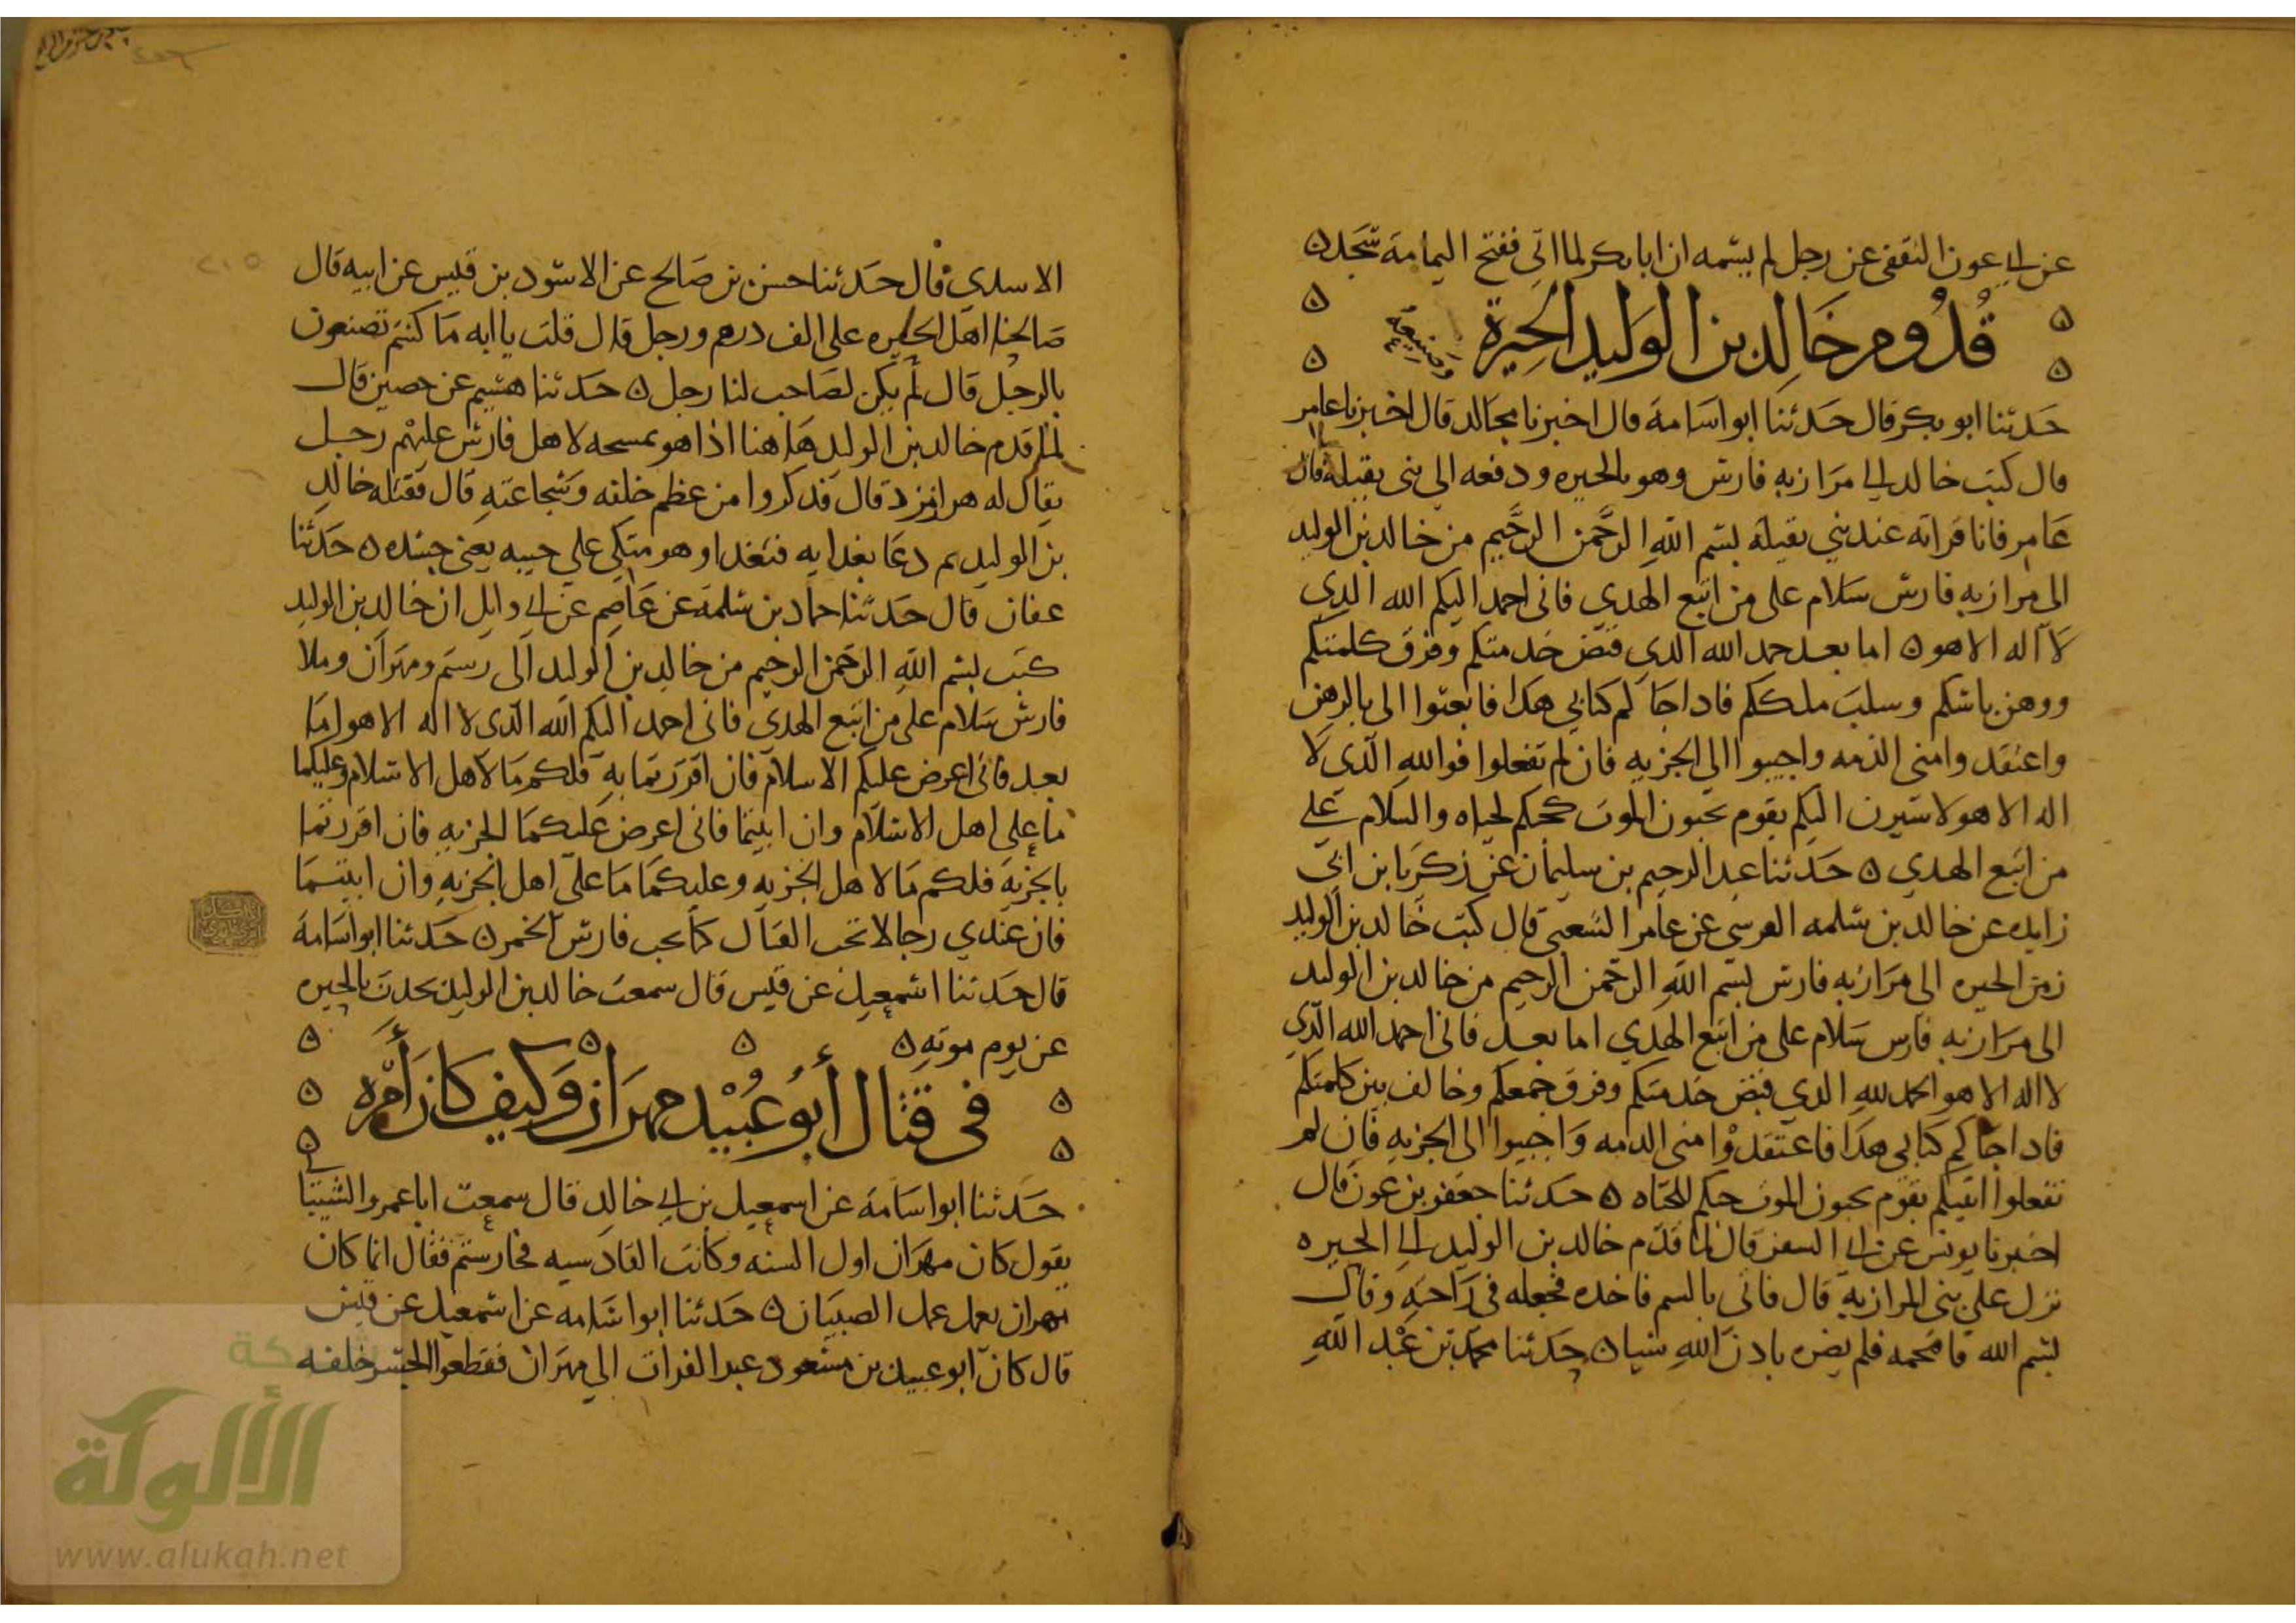 عن ابي عون الثقفي عن رجل لم يسمه ان ابا بكر لما اتى ففتح اليمامة سجد ن
قُدُوم خَالِد بن الوَلِيد الحِيرَة
وصنيعه
حَدثنا ابو بكر قال حَدثنا ابو اسَامةَ قال اخبرنا مجالد قال اخبرنا عامر
قال كتب خالد الى مَرازبه فارس وهو بالحيره ودفعه الى بنى بقيلة قال
عَامر فانا قراته عند بني بقيلة بسم الله الرحمن الرحيم من خالد بن الوليد
الى مرازبه فارس سَلام على من اتبع الهدي فانى احمد اليكم الله الذي
لا اله الا هو ن اما بعد حمد الله الذي فض خدمتكم وفرق كلمتكم
ووهن باسكم وسلب ملككم فاذا جاكم كتابي هذا فابعثوا الى بالرهن
واعتقدوا منى الذمه واجيبوا الى الجزيه فان لم تفعلوا فوالله الذي لا
اله الا هو لاسيرن اليكم بقوم يحبون الموت كحبكم الحياه والسلام على
من اتبع الهدي ن حَدثنا عبد الرحيم بن سليمان عن زكريا بن ابي
زايده عن خالد بن سلمه القرسى عن عامر الشعبى قال كتب خالد بن الوليد
زمن الحيره الى مَرازبه فارس بسم الله الرحمن الرحيم من خالد بن الوليد
الى مَرازبه فارس سَلام على من اتبع الهدي اما بعد فاني احمد الله الذي
لا اله الا هو الحمد لله الذي فض خدمتكم وفرق جمعكم وخالف بين كلمتكم
فاذا جاكم كتابي هذا فاعتقدوا منى الذمه وَاجيبوا الى الجزيه فان لم
تفعلوا اتيتكم بقوم يحبون الموت حبكم للحياه ن حَدثنا جعفر بن عون قال
اخبرنا يونس عن ابي السفر قال لما قدم خالد بن الوليد الى الحيره
نزل على بنى المرازبه قال فاتى بالسم فاخذه فجعله في رَاحته وقال
بسم الله فاقتحمه فلم يضره باذن الله شيا ن حَدثنا محمد بن عَبْد الله
الاسدي قال حَدثنا حسن بن صَالح عن الاسود بن قيس عن ابيه قال
صَالحنا اهل الحيره على الف درهم ورحل قال قلت يا ابه مَا كنتم تصنعون
بالرحل قال لم يكن لصَاحب لنا رحل ن حَدثنا هشيم عن حصين قال
لما قدم خالد بن الوليد هَاهنا اذا هو بمسحه لاهل فارس عليهم رجل
يقال له هرامزد قال فذكروا من عظم خلقه وشجاعته قال فقتله خالد
بن الوليد ثم دعَا بغدايه فتغدا وهو متكي على جيبه يعني جسده ن حَدثنا
عفان قال حَدثنا حماد بن سلمة عن عَاصم عن ابي وايل ان خالد بن الوليد
كتب بسم الله الرحمن الرحيم من خالد بن الوليد الى رستم ومهران وملا
فارس سَلام على من اتبع الهدي فانى احمد اليكم الله الذى لا اله الا هو امَا
بعد فانى اعرض عليكم الاسلام فان اقررتما به فلكم مَا لاهل الاسلام وعليكما
ما على اهل الاسلام وان ابيتما فانى اعرض عليكمَا الجزيه فان اقررتما
بالجزية فلكم مَا لاهل الجزيه وعليكمَا مَا على اهل الجزيه وان ابيتمَا
فان عندي رجالا تحب القتال كما تحب فارس الخمر ن حَدثنا ابو اسَامة
قال حَدثنا اسمعيل عن قيس قال سمعت خالد بن الوليد يحدث بالحيره
عن يوم موته ن
فى قتال أبو عُبَيْد مهرَان وَكيف كان أمْره
حَدثنا ابو اسَامة عن اسمعيل بن ابي خالد قال سمعت ابا عمرو الشيبا
يقول كان مهرَان اول السنه وكانت القادسيه فجا رستم فقال انما كان
مهران يعمل عمل الصبيَان ن حَدثنا ابو اسَامه عن اسمعيل عن قيس
قال كان ابو عبيد بن مسعود عبر الفرات الى مهرَان فقطعوا الجسر خلفه
٢١٥
شبكة
الألوكة
www.alukah.net